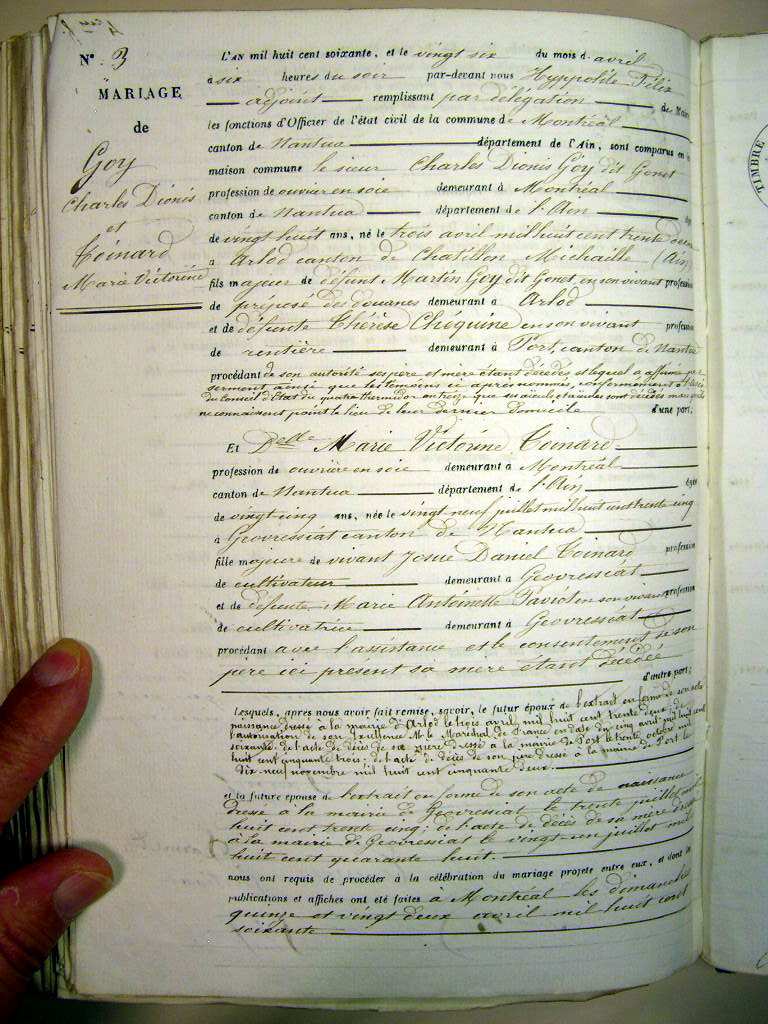 N° 3
MARIAGE
de
Goy
Charles Dionis
et
Coinard
Marie Victorine
L'AN mil huit cent soixante, et le vingt six du mois d'avril
à six heures du soir par-devant nous Hyppolite Félix
adjoint remplissant par délégation de Maire
les fonctions d'Officier de l'état civil de la commune de Montréal
canton de Nantua département de l'Ain, sont comparus en la
maison commune le sieur Charles Dionis Goy dit Gonet
profession de ouvrier en soie demeurant à Montréal
canton de Nantua département de l'Ain âgé
de vingt huit ans, né le trois avril mil huit cent trente deux
à Arlod canton de Chatillon Michaille (Ain)
fils majeur de défunt Martin Goy dit Gonet, en son vivant profession
de préposé des douanes demeurant à Arlod
et de défunte Thérèse Chéquine en son vivant profession
de rentière demeurant à Port, canton de Nantua
procédant de son autorité ses père et mère étant décédés et lequel a affirmé par
serment, ainsi que les témoins ci après nommés, conformément à l'avis
du Conseil d'Etat du quatre thermidor an treize que ses aïeuls et aïeules sont décédés mais qu'ils
ne connaissent point le lieu de leur dernier domicile d'une part;
Et Delle Marie Victorine Coinard
profession de ouvrière en soie demeurant à Montréal
canton de Nantua département de l'Ain âgée
de vingt cinq ans, née le vingt neuf juillet mil huit cent trente cinq
à Geovressiat canton de Nantua
fille majeure de vivant Josué Daniel Coinard profession
de cultivateur demeurant à Geovressiat
et de défunte Marie Antoinette Paviot en son vivant profession
de cultivatrice demeurant à Geovressiat
procédant avec l'assistance et le consentement de son
père ici présent sa mère étant décédée
d'autre part;
Lesquels, après nous avoir fait remise, savoir, le futur époux de l'extrait en forme de son acte
naissance dressé à la mairie d'Arlod le trois avril mil huit cent trente deux; de
l'autorisation de son Excellence Mr le Maréchal de France en date du cinq avril mil huit cent
soixante; de l'acte de décès de sa mère dressé à la mairie de Port le trente octobre mil
huit cent cinquante trois; de l'acte de décès de son père dressé à la mairie de Port le
dix-neuf novembre mil huit cent cinquante deux.
et la future épouse de l'extrait en forme de son acte de naissance
dressé à la mairie de Geovressiat le trente juillet mil
huit cent trente cinq; de l'acte de décès de sa mère dressé
à la mairie de Geovressiat le vingt-un juillet mil
huit cent quarante huit.
nous ont requis de procéder à la célébration du mariage projeté entre eux, et dont les
publications et affiches ont été faites à Montréal les dimanches
quinze et vingt deux avril mil huit cent
soixante
TIMBRE